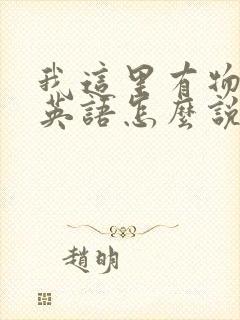 我這里有物
英語怎麼說
趙明